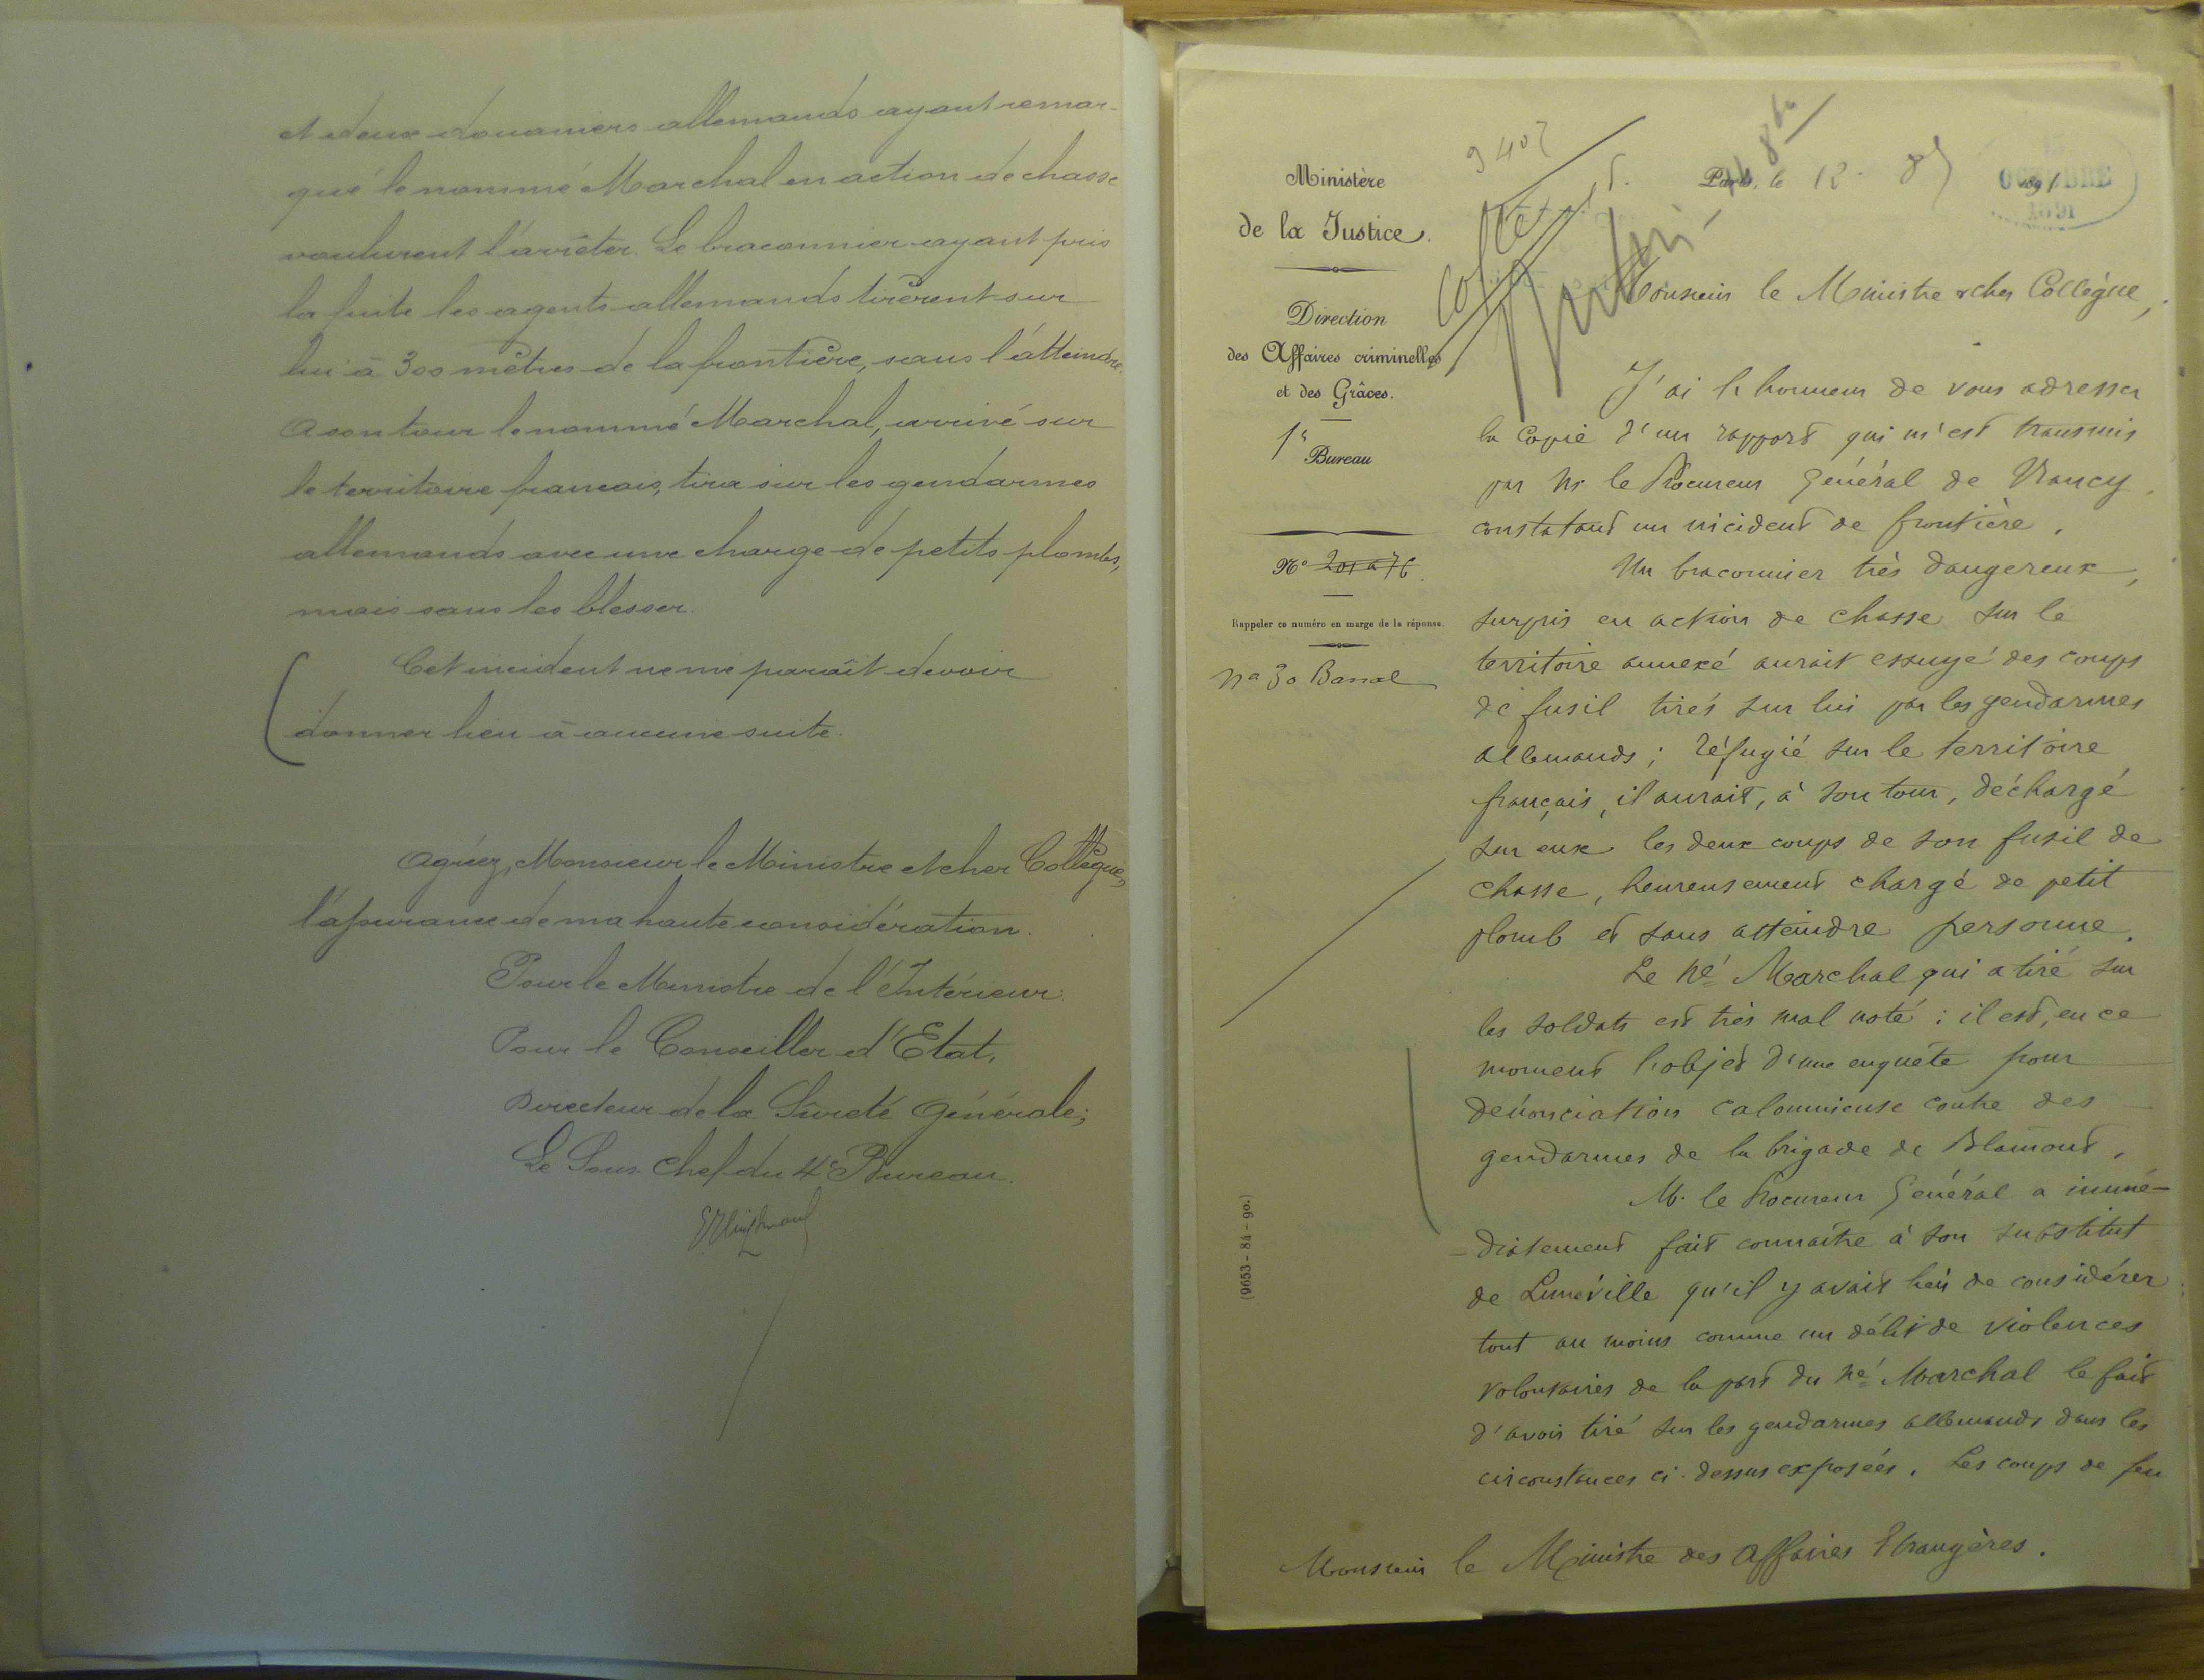 et deux douaniers allemands ayant remar-
qué le nommé Marchal en action de chasse
voulurent l'arrêter. Le braconnier ayant pris
la fuite les agents allemands tirèrent sur
lui à 300 mètres de la frontière, sans l'atteindre.
A son tour le nommé Marchal, arrivé sur
le territoire français, tira sur les gendarmes
allemands avec une charge de petits plombs,
mais sans les blesser.
Cet incident ne me paraît devoir
donner lieu à aucune suite.
Agréez, Monsieur le Ministre et cher Collègue,
l'assurance de ma haute considération.
Pour le Ministre de l'Intérieur:
Pour le Conseiller d'Etat,
Directeur de la Sûreté Générale;
Le Sous-Chef du 4e Bureau.
Ministère
de la Justice.
Direction
des Affaires criminelles
et des Grâces.
1er
Bureau
No 201 a 76
Rappeler ce numéro en marge de la réponse.
No 30 Banal
(9653 - 84 - 90.)
Paris, le 12. 189
OCTOBRE
1891
Monsieur le Ministre & cher Collègue,
J'ai l'honneur de vous adresser
la copie d'un rapport qui m'est transmis
par Mr le Procureur Général de Nancy,
constatant un incident de frontière.
Un braconnier très dangereux,
surpris en action de chasse sur le
territoire annexé aurait essuyé des coups
de fusil tirés sur lui par les gendarmes
allemands; réfugié sur le territoire
français, il aurait, à son tour, déchargé
sur eux les deux coups de son fusil de
chasse, heureusement chargé de petit
plomb et sans atteindre personne.
Le né Marchal qui a tiré sur
les soldats est très mal noté: il est, en ce
moment l'objet d'une enquête pour
dénonciation calomnieuse contre des
gendarmes de la brigade de Blamont.
M. le Procureur Général a immé-
-diatement fait connaître à son substitut
de Lunéville qu'il y avait lieu de considérer
tout au moins comme un délit de violences
volontaires de la part du né Marchal le fait
d'avoir tiré sur les gendarmes allemands dans les
circonstances ci-dessus exposées. Les coups de feu
Monsieur le Ministre des Affaires Etrangères.